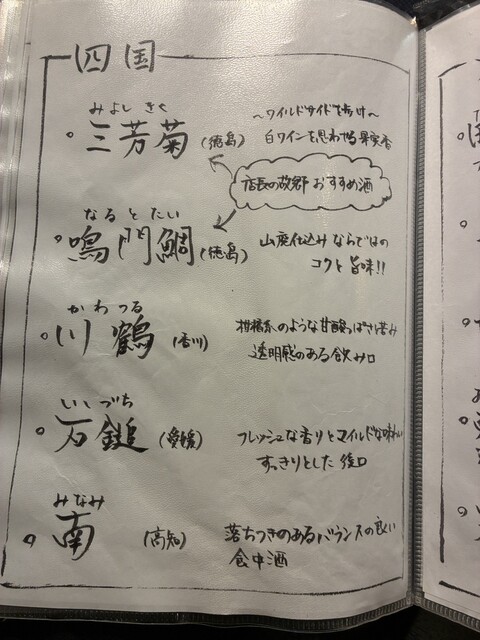 四国
みよし きく
三芳菊 (徳島)
〜ワイルドサイドを歩け〜
白ワインを思わせる果実香
店長の故郷 おすすめ酒
なるとたい
鳴門鯛 (徳島)
山廃仕込みならではの
コクと旨味!!
かわつる
川鶴 (香川)
柑橘系のような甘酸っぱさ苦み
透明感のある飲み口
いしづち
石鎚 (愛媛)
フレッシュな香りとマイルドな味わい
すっきりとした後口
みなみ
南 (高知)
落ちつきのあるバランスの良い
食中酒